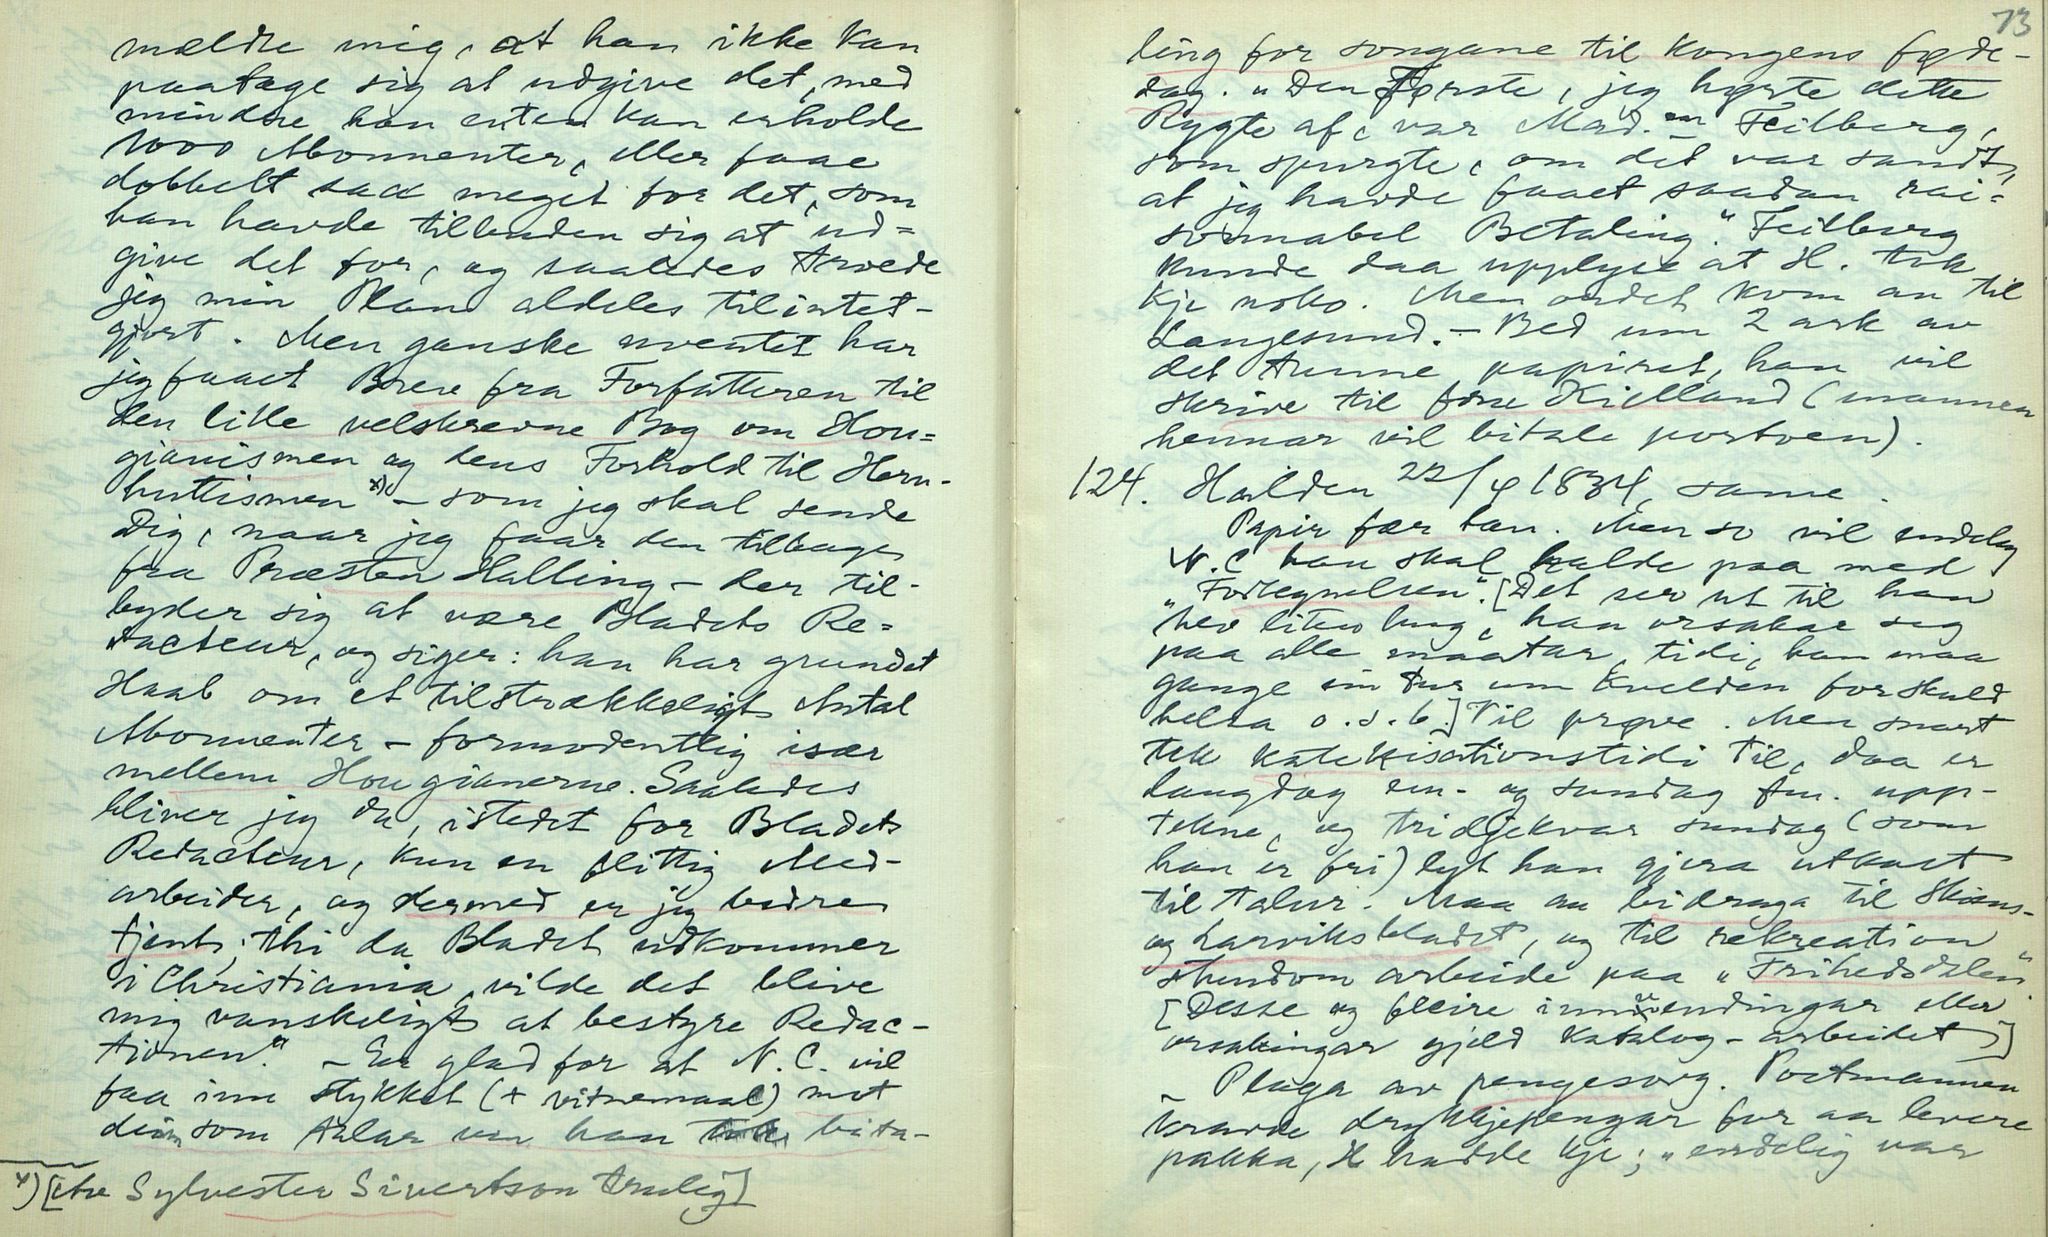 mældte mig, at han ikke kan
paatage sig at udgive det, med
mindre han enten kan erholde
1000 Abonnenter, eller faae
dobbelt saa meget for det, som
han havde tilbuden sig at ud=
give det for, og saaledes troede
jeg min Plan aldeles tilintet-
gjort. Men ganske uventet har
jeg faaet Brev fra Forfatteren til
den lille velskrevne Bog om Hou=
gianismen og dens Forhold til Hern-
huttismen x) – som jeg skal sende
Dig, naar jeg faar den tilbage
fra Præsten Halling – der til-
byder sig at være Bladets Re=
dacteur, og siger: han har grundet
Haab om et tilstrækkeligt Antal
Abonnenter – formodentlig især
mellem Hougianerne. Saaledes
bliver jeg da, istedet for Bladets
Redacteur, kun en flittig Med-
arbeider, og dermed er jeg bedre
tjent; thi da Bladet udkommer
i Christiania, vilde det blive
mig vanskeligt at bestyre Redac-
tionen." – Er glad for at N. C. vil
faa inn stykket (+ vitnemaal) mot
deim som talar um han tok beta-
x) [itr Sylvester Sivertson truleg]
73
ling for songane til Kongens føde-
dag. "Den Første, jeg hørte dette
Rygte af, var Mad.en Feilberg,
som spurgte, om det var sandt,
at jeg havde faaet saadan rai=
sonnabel Betaling." Feilberg
kunde daa upplyse at H. tok
kje noko. Men ordet kom an til
Langesund. – Bed um 2 ark av
det tunne papiret, han vil
skrive til frue Kielland (mannen
hennar vil bitale portoen).
124. Halden 22/9 1834, same.
Papir fær han. Men so vil endeleg
N. C han skal halde paa med
"Fortegnelsen". [Det ser ut til han
hev liten hug, han orsakar seg
paa alle maatar, tidi, han maa
gange ein tur um kvelden for skuld
helsa o. s. b.] Til prøve. Men snart
tek katekisationstidi til, daa er
laugdag em. og sundag fm. upp-
tekne, og tridjekvar sundag (som
han er fri) lyt han gjera utkast
til talur. Maa au bidraga til Skiens-
og Larviksbladet, og til rekreation
stundom arbeide paa "Frihedsdalen".
[Desse og fleire innvendingar eller
orsakingar gjeld katalog-arbeidet]
Plaga av pengesorg. Postmannen
kravde drykkjepengar for aa levere
pakka, H hadde kje; "endelig var